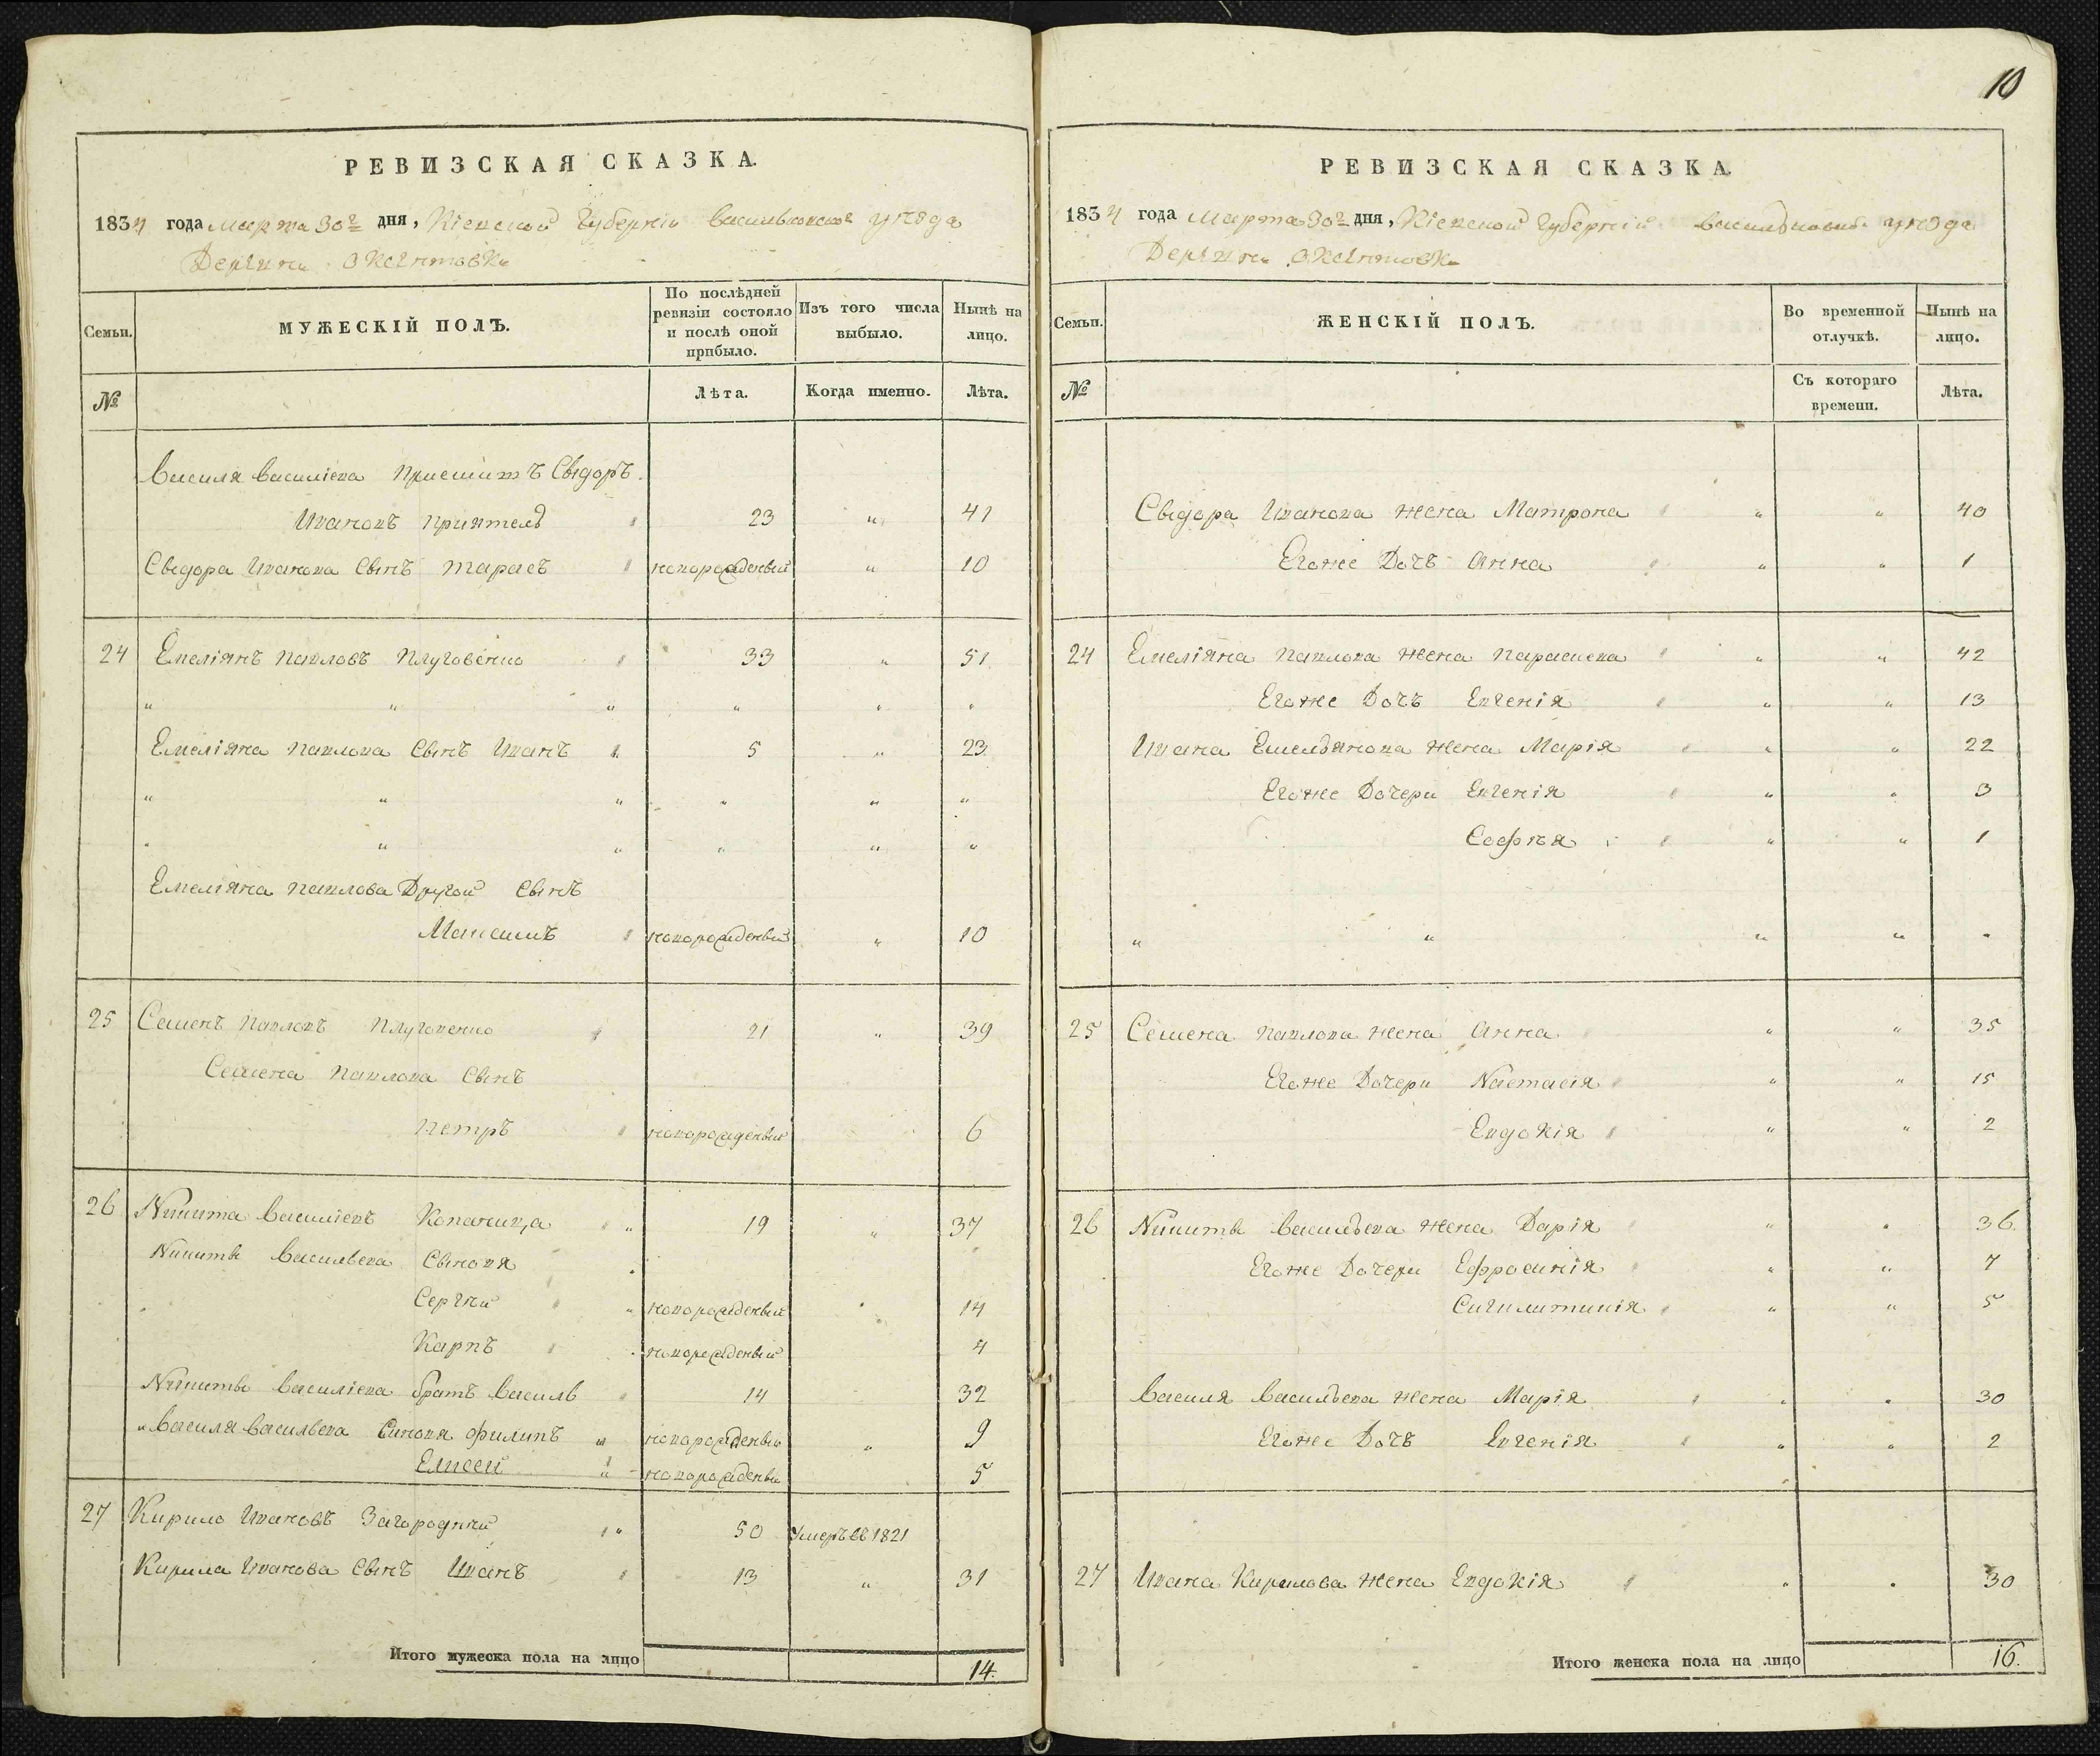 10
РЕВИЗСКАЯ СКАЗКА.
1834 года марта 30го дня, Кіевской Губерніи Васильковского уѣзда
Деревни
Семьи.
МУЖЕСКІЙ ПОЛЪ.
По послѣдней ревизіи состояло и послѣ оной прибыло.
Изъ того числа выбыло.
Нынѣ на лицо.
№
Лѣта.
Когда именно.
Лѣта.
Василя Василіева Приемытъ Свыдоръ
Ивановъ Приятель 23 " 41
Свыдора Иванова Сынъ Тарасъ новорожденный " 10
24 Емеліянъ Павловъ Плуговенко 33 " 51
" " " " " "
Емеліяна Павлова Сынъ Иванъ " 5 " 23
" " " " " "
" " " " " "
Емеліяна Павлова Другой Сынъ
Максимъ новорожденный " 10
25 Семенъ Павловъ Плуговенко 21 " 39
Семена Павлова Сынъ
Петръ новорожденный 6
26 Никита Василіевъ Копаница " 19 " 37
Никиты Васильева Сыновя
Сергѣй " новорожденный " 14
Карпъ новорожденный 4
Никиты Василіева братъ Василь 14 32
" Василя Васильева Синовя Филипъ " новорожденный " 9
Елисей " новорожденны 5
27 Кирило Ивановъ Загородній " 50 Умеръ въ 1821
Кирила Иванова Сынъ Иванъ 13 " 31
Итого мужеска пола на лицо 14.
РЕВИЗСКАЯ СКАЗКА
1834 года Марта 30го дня, Кіевской Губерніи уѣзда
Деревни
Семьи.
ЖЕНСКІЙ ПОЛЪ.
Во временной отлучкѣ.
Нынѣ на лицо.
№
Съ котораго времени.
Лѣта.
Свыдора Иванова жена Матрона " " 40
Егоже Дочь Анна " " 1
24 Емеліяна Павлова жена Параскева " " 42
Егоже Дочь Евгенія " " 13
Ивана Емельянова жена Марія " " 22
Егоже Дочери Евгенія " " 3
Софѣя " " 1
" " " " "
25 Семена Павлова жена Анна " " 35
Егоже Дочери Настасія " " 15
Евдокія " " 2
26 Никиты Васильева жена Дарія " " 36
Егоже Дочери Ефросинія " " 7
" " 5
Василя Васильева жена Марія " " 30
Егоже Дочь Евгенія " " 2
27 Ивана Кирилова жена Евдокія " " 30
Итого женска пола на лицо 16.